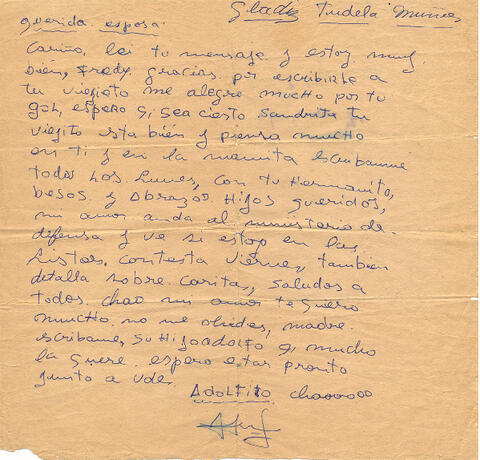 Gladys Tudela Muñoz
Querida esposa.
Cariño, leí tu mensaje y estoy muy
bien, Fredy gracias por escribirle a
tu viejito me alegre mucho por tu
gol, espero q, sea cierto Sandrita tu
viejito esta bien y piensa mucho
en ti y en la mamita Escribanme
todos los Lunes, con tu Hermanito,
besos y Abrazos Hijos queridos,
mi amor anda al ministerio de
defensa y ve si estoy en las
Listas. Contesta Viernes, también
detalla sobre Carita, saludos a
todos. chao mi amor te quero
mucho no me olvides, madre
escribame, su Hijo adolfo q, mucho
la quere. espero estar pronto
junto a uds.
ADOLFITO chaooooo